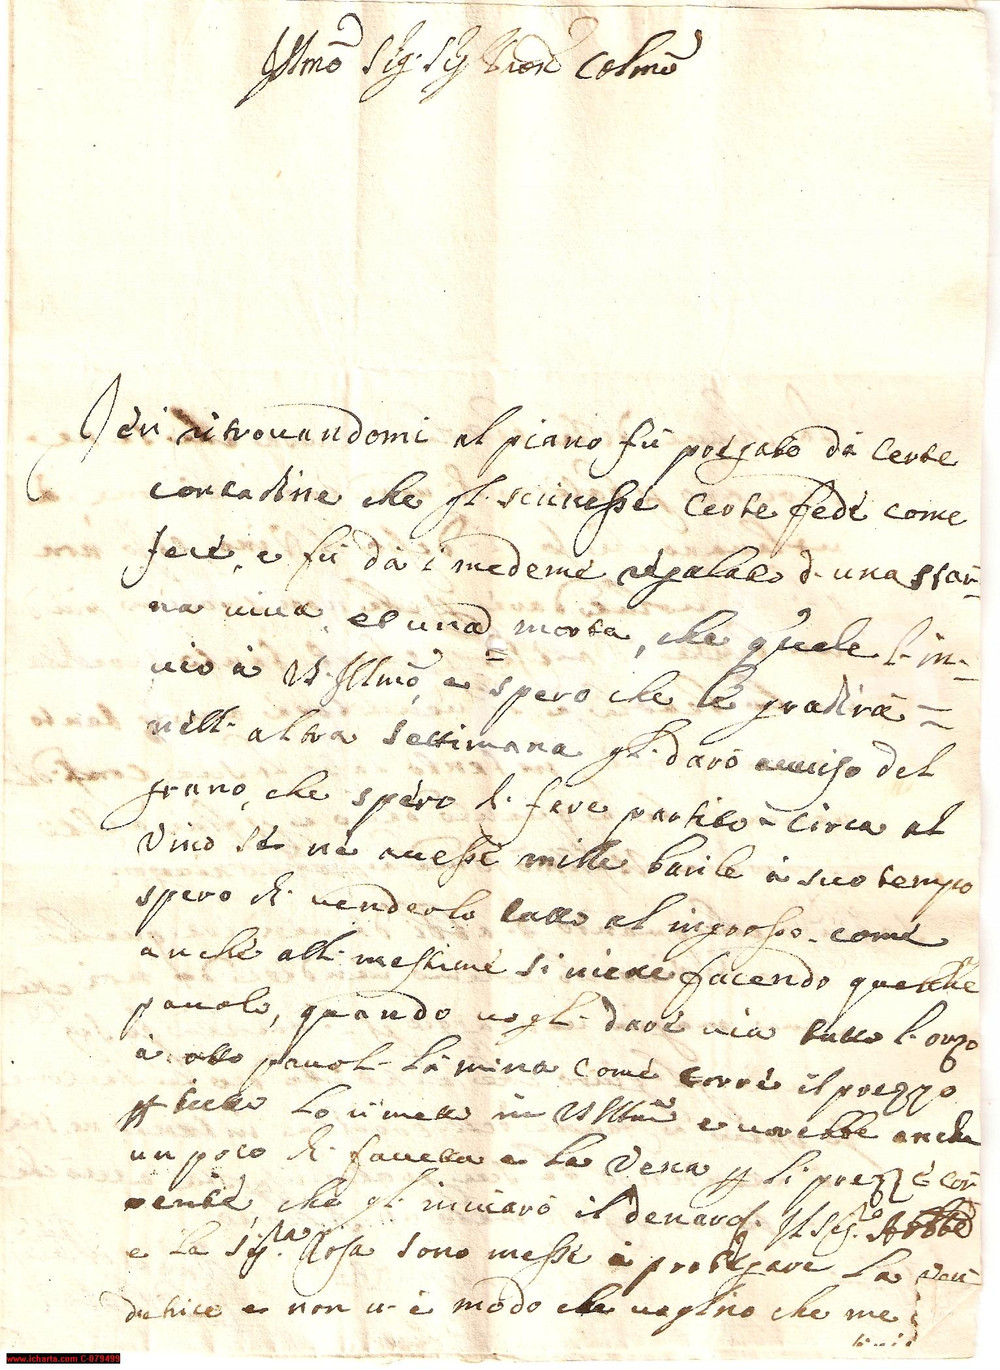 Illmo Sig. Sig. Pron Colmo
Ieri ritrovandomi al piano fù pregato dà certe
contadine che gl. scrivesse certe fede come
feci, e fù dà i medemè regalato d. una star=
na viva, et una morta, che quale l. in=
vio à V.S. Illmo, e spero che le gradirà=
nell. altra settimana gl. darò avviso del
grano, che spero di fare partito= circa al
vino se nè avesse mille barile à suo tempo
spero di venderlo tutto al ingrosso. come
anche all. mestiere si viene facendo qualche
pavolo, quando vogl. dare via tutto l. orzo
à otto pavol. la mina come corre il prezzo
tutto lo rimetto in V.S. Illma e vorebbe anche
un poco di faveta e la vena li prezzi cor
rente che gl. inviarò il denaro. Il Sig.o Abbe
e la Sig.ra Rosa sono messe à protegare la ven
ditrice e non v. è modo che voglino che me
www.icharta.com C-079499